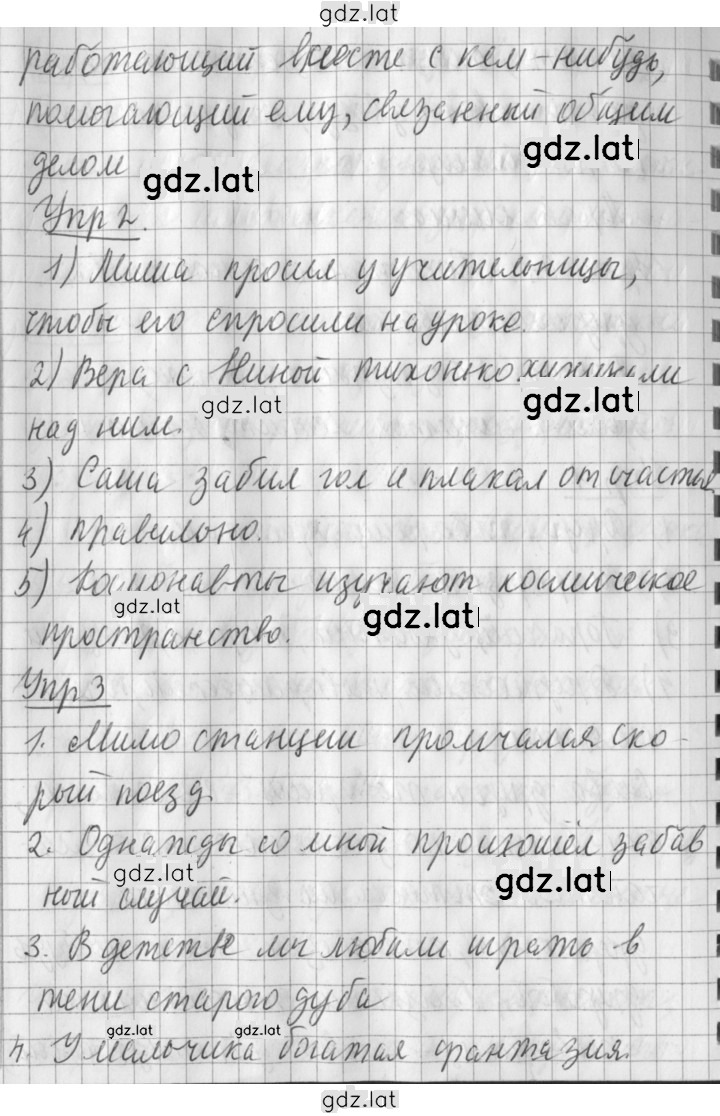 gdz.lat
работающий вместе с кем-нибудь,
помогающий ему, связанный общим
делом
gdz.lat
gdz.lat
Упр 2.
1) Миша просил у учительницы,
чтобы его спросили на уроке.
2) Вера с Ниной тихонько хихикали
gdz.lat
gdz.lat
над ним.
3) Саша забил гол и плакал от счастья
4) правильно.
5) Космонавты изучают космическое
gdz.lat
gdz.lat
пространство.
Упр 3
1. Мимо станции промчался ско-
рый поезд.
2. Однажды со мной произошёл забав
gdz.lat
gdz.lat
ный случай.
3. В детстве мы любили играть в
тени старого дуба
gdz.lat
gdz.lat
4. У мальчика богатая фантазия.
gdz.lat